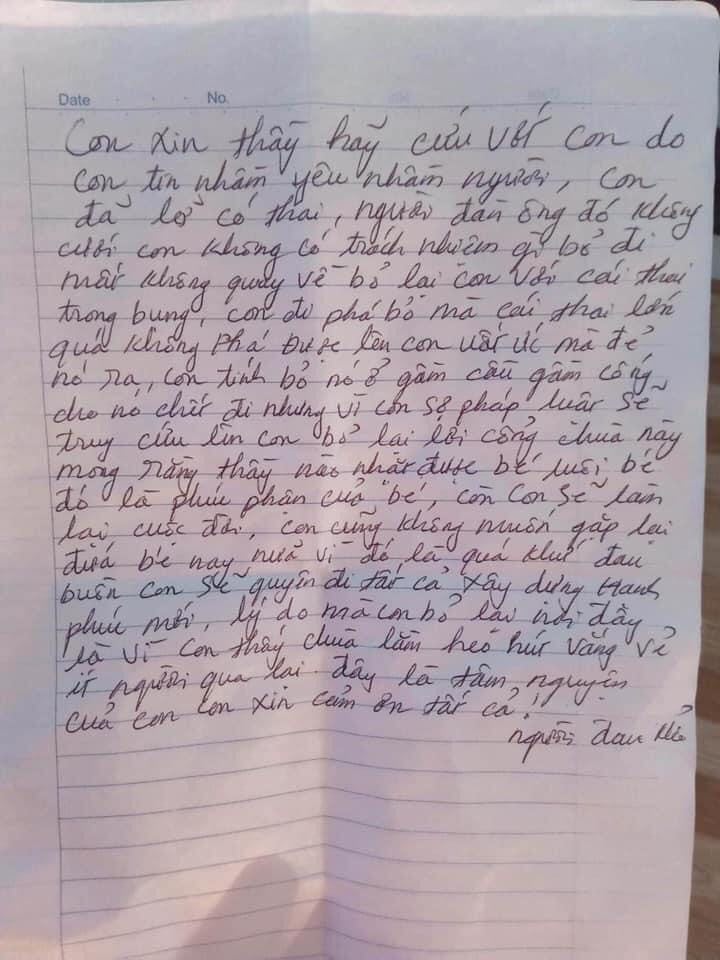 Date No.
Con xin thầy hãy cứu với con do
con tin nhầm yêu nhầm người, con
đã lở có thai, người đàn ông đó không
cưới con không có trách nhiệm gì bỏ đi
mất không quay về bỏ lại con với cái thai
trong bụng, con đi phá bỏ mà cái thai lớn
quá không phá được lên con uất ức mà đẻ
nó ra, con tính bỏ nó ở gầm cầu gầm cống
cho nó chết đi nhưng vì con sợ pháp luật sẽ
truy cứu lên con bỏ lại lời cổng chùa này
mong rằng thầy nào nhặt được bé nuôi bé
đó là phúc phận của "bé", còn con sẽ làm
lại cuộc đời, con cũng không muốn gặp lại
đứa bé nay nửa vì đó là quá khứ đau
buồn con sẽ quyên đi tất cả xây dựng hạnh
phúc mới, lý do mà con bỏ lại nơi đây
là vì con thấy chùa lằm heó hút vắng vẻ
ít người qua lại. đây là tâm nguyện
của con con xin cảm ơn tất cả!
người đau khổ